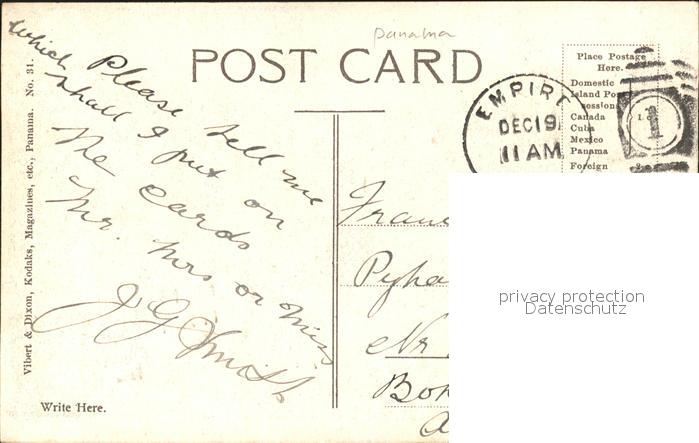 Panama
POST CARD
Please tell me
which shall I put on
the cards
Mr. Mrs or Miss
J. G. Smith
Vibert & Dixon, Kodaks, Magazines, etc., Panama. No. 31.
Write Here.
EMPIRE
DEC 19
11 AM
1
Place Postage
Here.
Domestic
Island
Canada
Cuba
Mexico
Panama
Foreign
privacy protection
Datenschutz